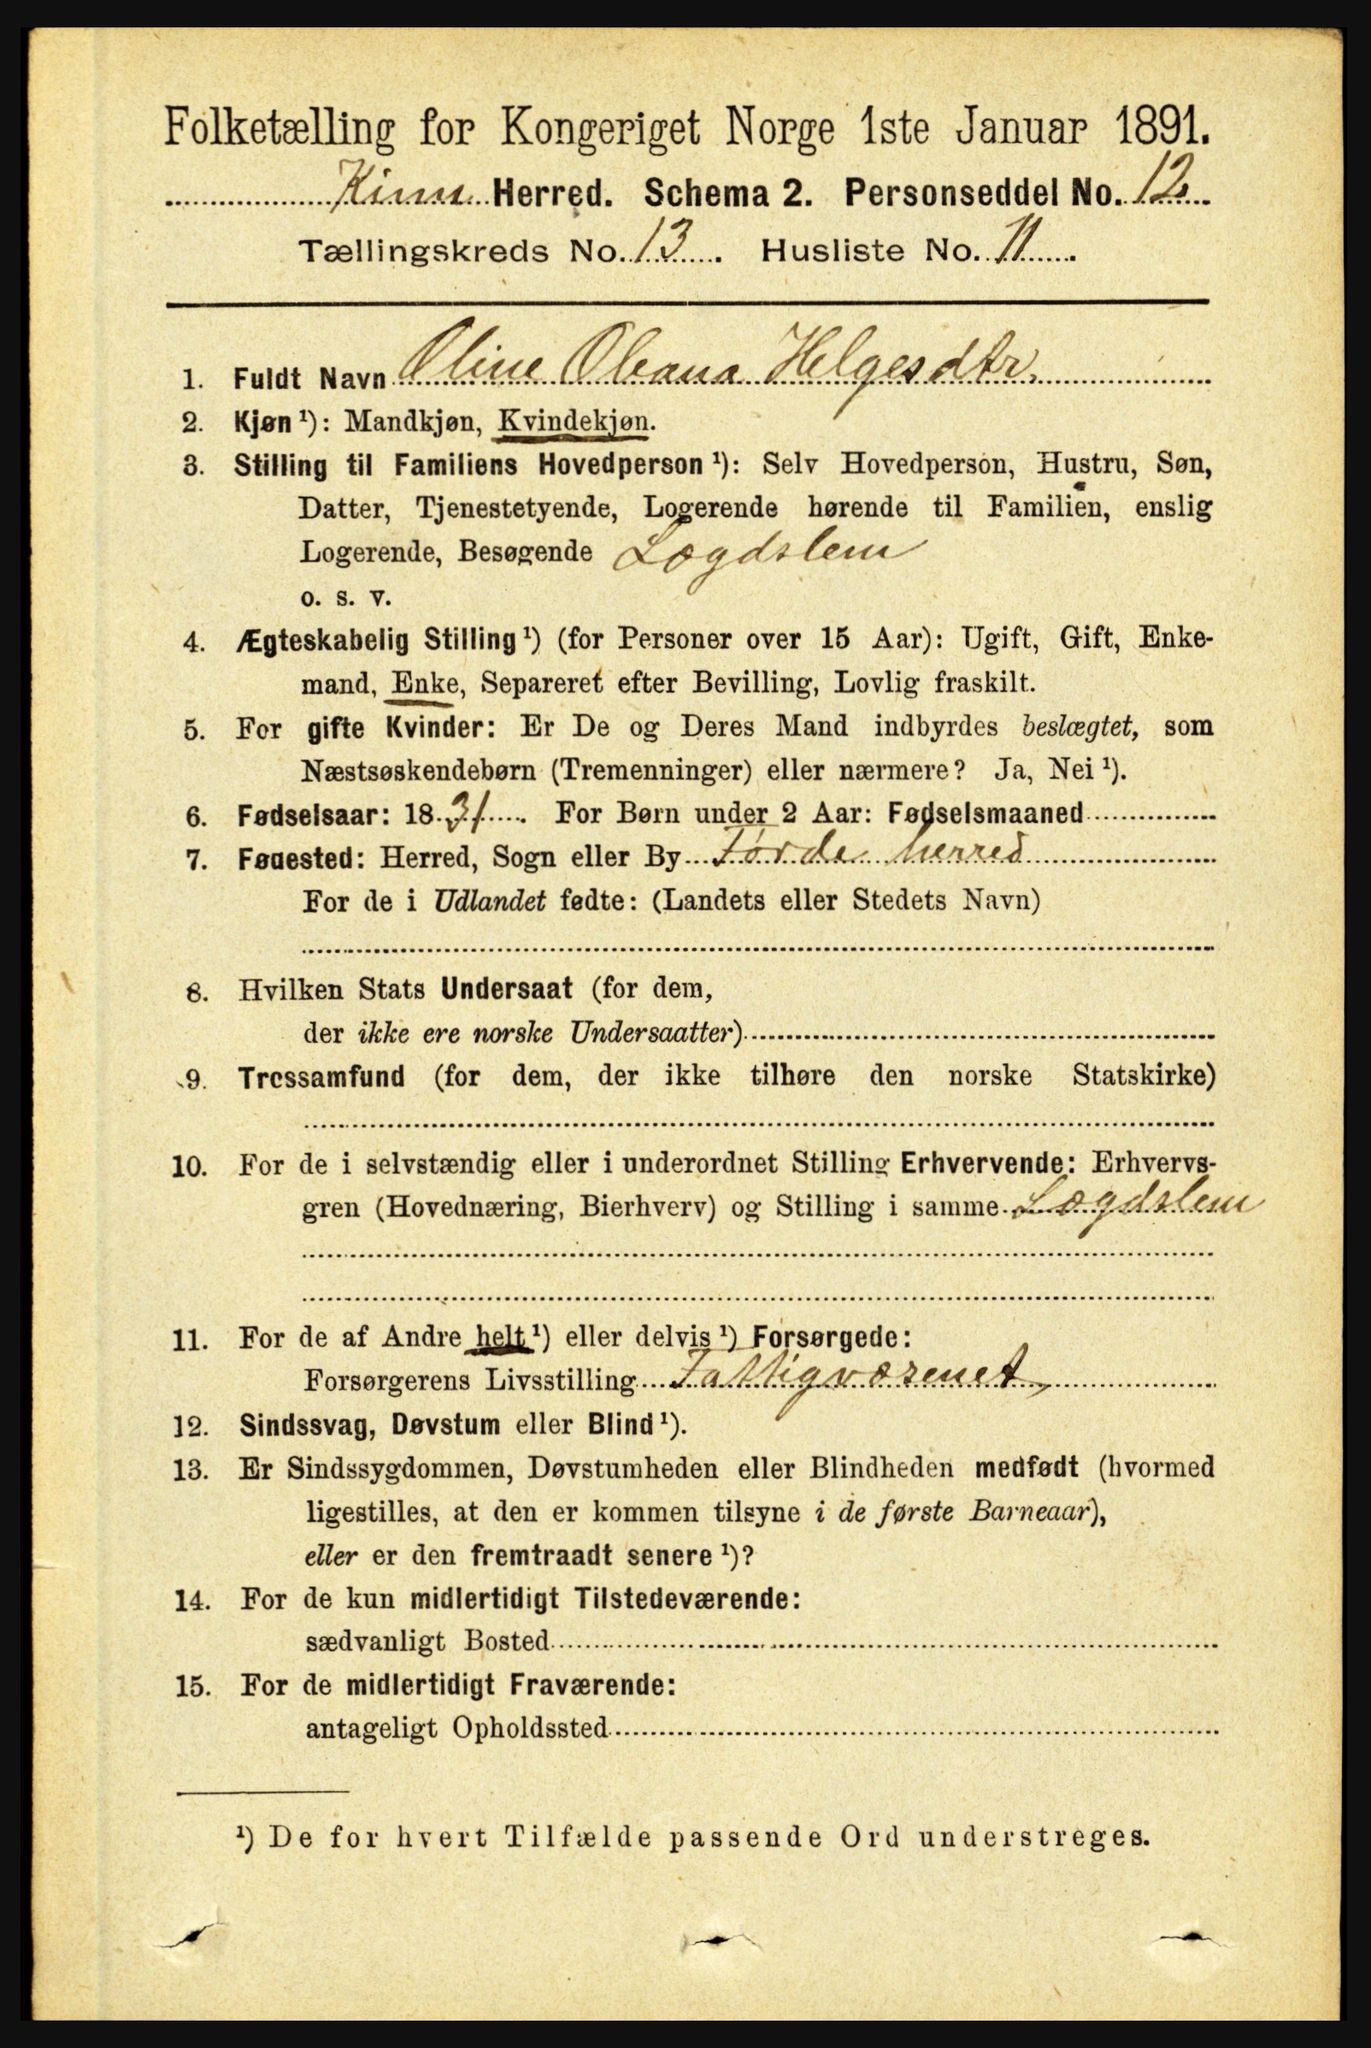 Folketælling for Kongeriget Norge 1ste Januar 1891.
Kinn Herred. Schema 2. Personseddel No. 12
Tællingskreds No. 13. Husliste No. 11.
1. Fuldt Navn Oline Oleana Helgesdtr.
2. Kjøn ¹): Mandkjøn, Kvindekjøn.
3. Stilling til Familiens Hovedperson ¹): Selv Hovedperson, Hustru, Søn,
Datter, Tjenestetyende, Logerende hørende til Familien, enslig
Logerende, Besøgende Lægdslem
o. s. v.
4. Ægteskabelig Stilling ¹) (for Personer over 15 Aar): Ugift, Gift, Enke-
mand, Enke, Separeret efter Bevilling, Lovlig fraskilt.
5. For gifte Kvinder: Er De og Deres Mand indbyrdes beslægtet, som
Næstsøskendebørn (Tremenninger) eller nærmere? Ja, Nei ¹).
6. Fødselsaar: 1831. For Børn under 2 Aar: Fødselsmaaned
7. Fødested: Herred, Sogn eller By Førde herred
For de i Udlandet fødte: (Landets eller Stedets Navn)
8. Hvilken Stats Undersaat (for dem,
der ikke ere norske Undersaatter)
9. Trossamfund (for dem, der ikke tilhøre den norske Statskirke)
10. For de i selvstændig eller i underordnet Stilling Erhvervende: Erhvervs-
gren (Hovednæring, Bierhverv) og Stilling i samme Lægdslem
11. For de af Andre helt ¹) eller delvis ¹) Forsørgede:
Forsørgerens Livsstilling Fattigvæsenet,
12. Sindssvag, Døvstum eller Blind ¹).
13. Er Sindssygdommen, Døvstumheden eller Blindheden medfødt (hvormed
ligestilles, at den er kommen tilsyne i de første Barneaar),
eller er den fremtraadt senere ¹)?
14. For de kun midlertidigt Tilstedeværende:
sædvanligt Bosted
15. For de midlertidigt Fraværende:
antageligt Opholdssted
¹) De for hvert Tilfælde passende Ord understreges.